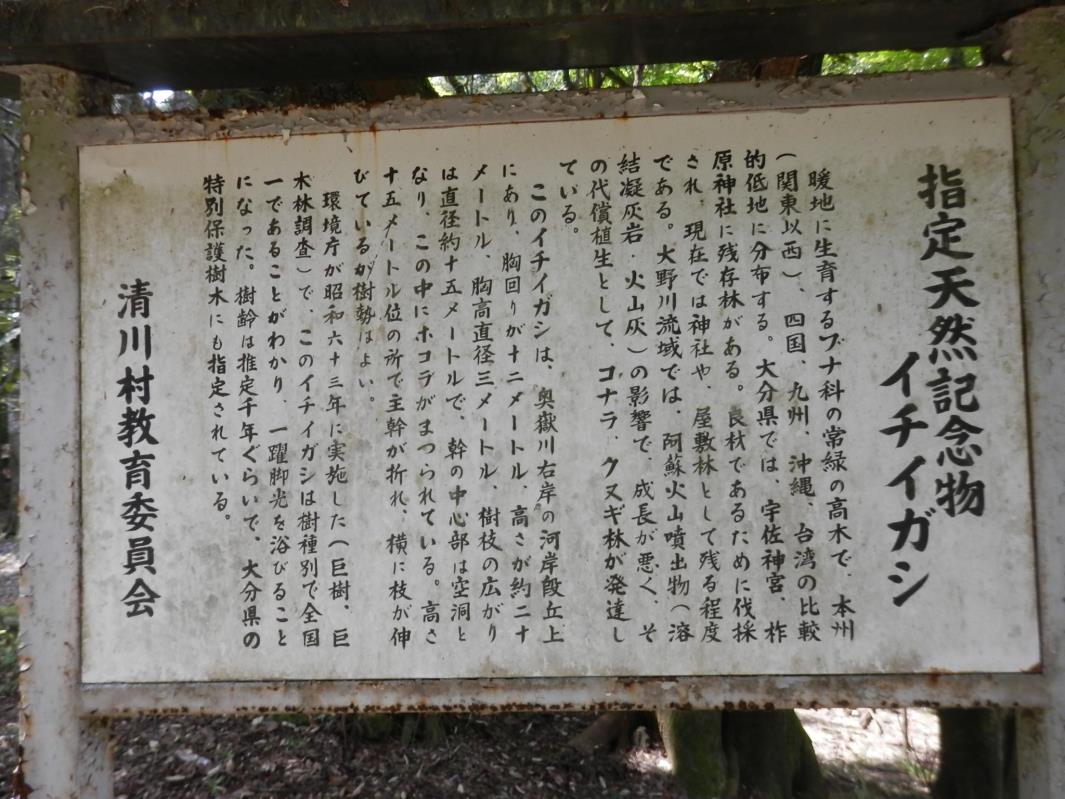 指定天然記念物
イチイガシ
暖地に生育するブナ科の常緑の高木で、本州
(関東以西)、四国、九州、沖縄、台湾の比較
的低地に分布する。大分県では、宇佐神宮、柞
原神社に残存林がある。良材であるために伐採
され、現在では神社や、屋敷林として残る程度
である。大野川流域では、阿蘇火山噴出物(溶
結凝灰岩・火山灰)の影響で、成長が悪く、そ
の代償植生として、コナラ、クヌギ林が発達し
ている。
このイチイガシは、奥嶽川右岸の河岸段丘上
にあり、胸回りが十二メートル、高さが約二十
メートル、胸高直径三メートル、樹枝の広がり
は直径約十五メートルで、幹の中心部は空洞と
なり、この中にホコラがまつられている。高さ
十五メートル位の所で主幹が折れ、横に枝が伸
びているが樹勢はよい。
環境庁が昭和六十三年に実施した(巨樹、巨
木林調査)で、このイチイガシは樹種別で全国
一であることがわかり、一躍脚光を浴びること
になった。樹齢は推定千年ぐらいで、大分県の
特別保護樹木にも指定されている。
清川村教育委員会